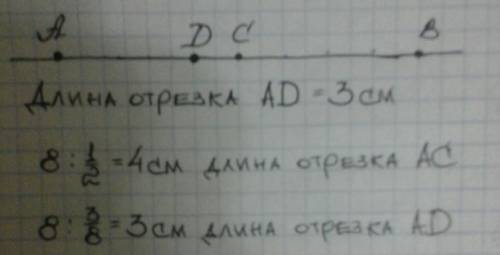 A D C B
Длина отрезка AD = 3 см
8 : 1/2 = 4 см длина отрезка AC
8 : 3/8 = 3 см длина отрезка AD